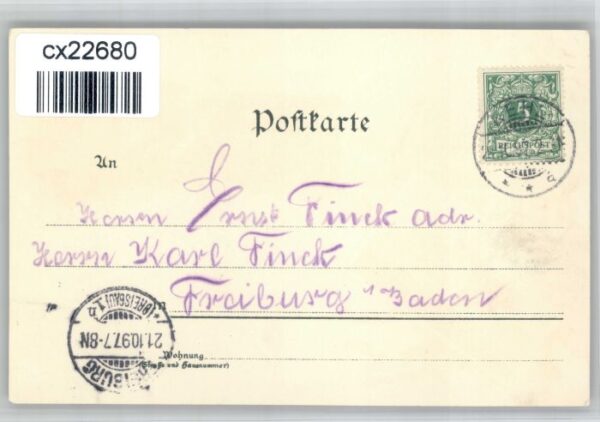 cx22680
Postkarte
REICHSPOST
An
Herrn Ernst Finck adr.
Herrn Karl Finck
Freiburg i Baden
(BREISGAU) 1.
21.10.97.7-8N
Wohnung
(Straße und Hausnummer)